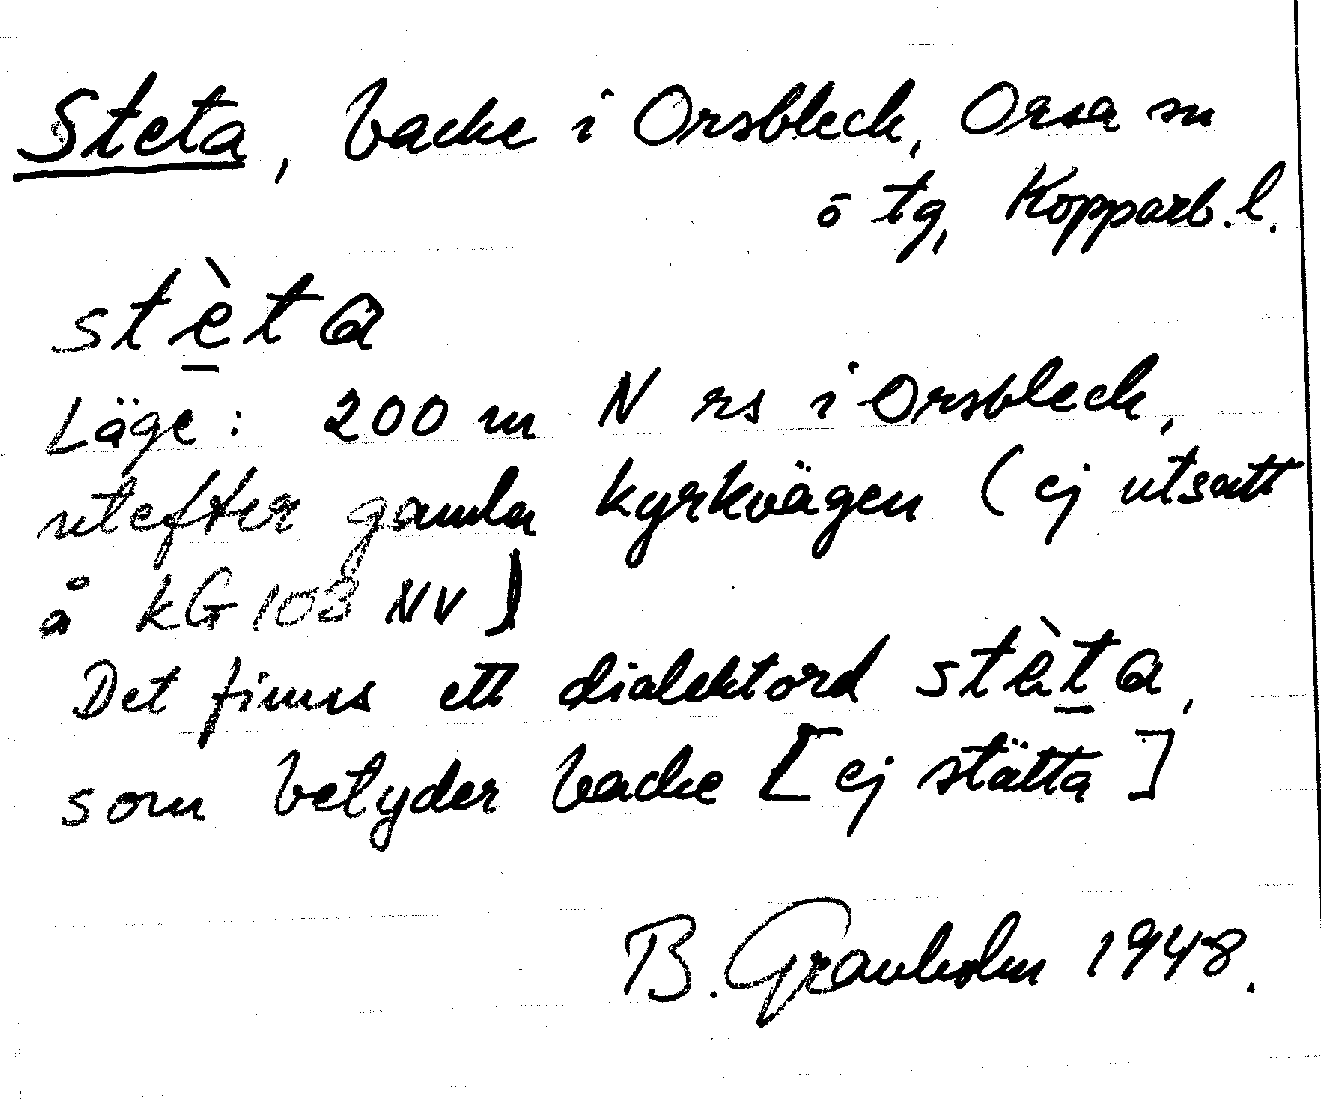 Steta, backe i Orsbleck, Orsa sn
ö tg, Kopparb. l.
stè̱ta
Läge: 200 m N rs i Orsbleck,
utefter gamla kyrkvägen (ej utsatt
å kG 108 NV)
Det finns ett dialektord stèṯa,
som betyder backe [ej stätta]
B. Granholm 1948.